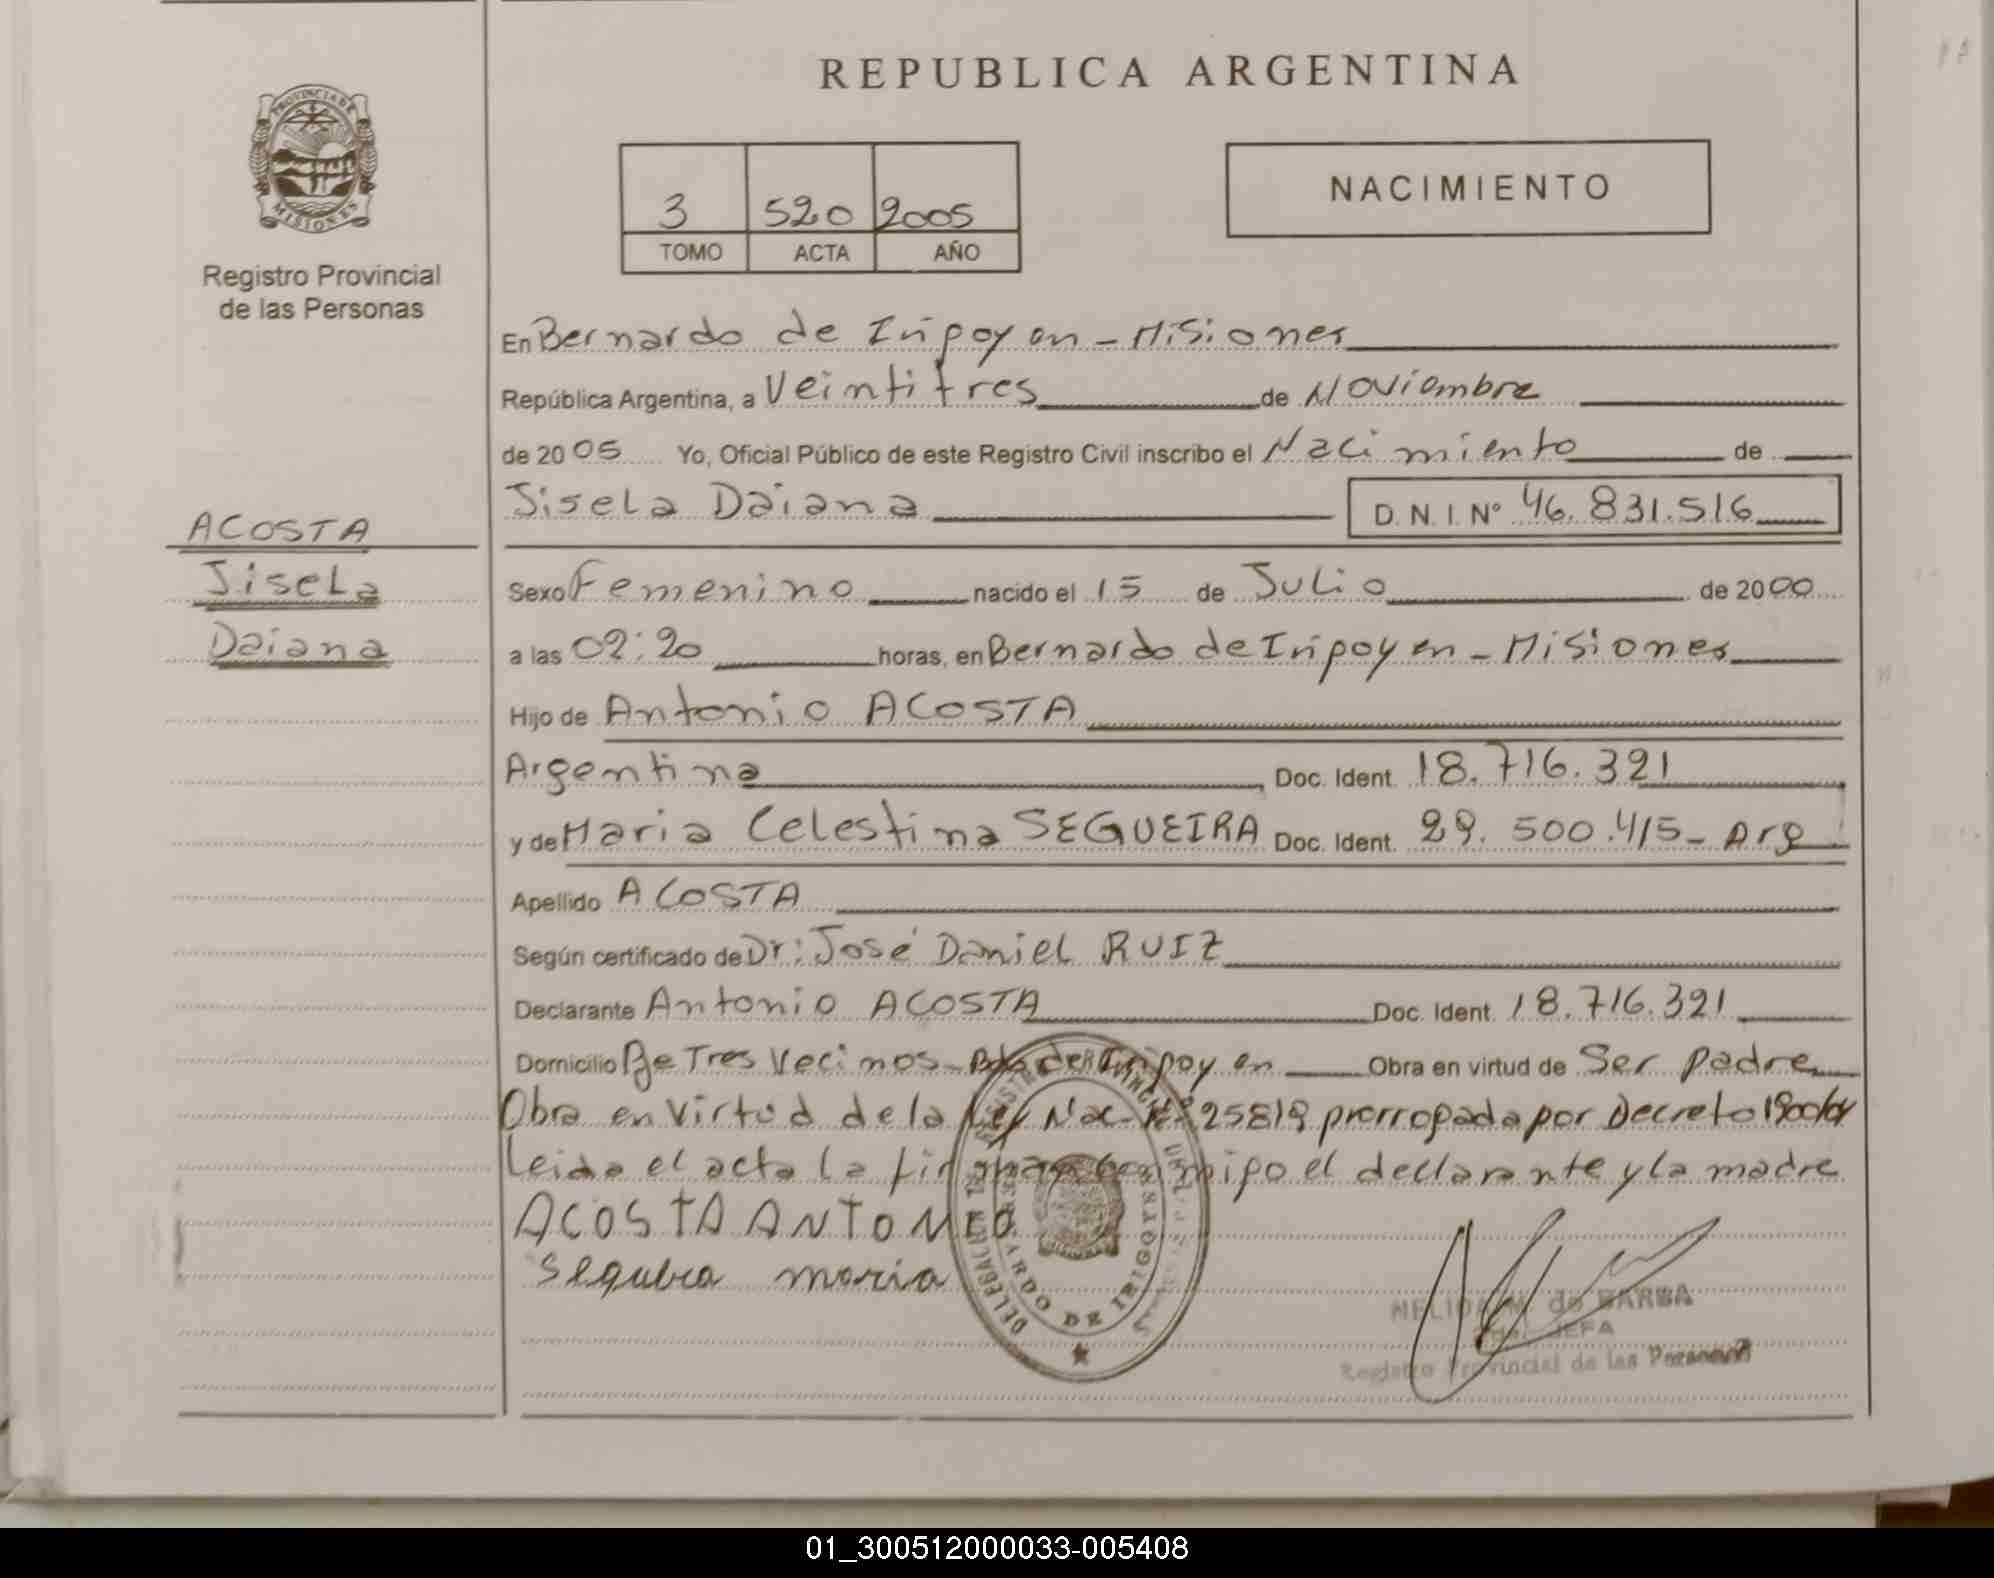 REPUBLICA ARGENTINA
PROVINCIA DE
MISIONES
Registro Provincial
de las Personas
3 520 2005
TOMO ACTA AÑO
NACIMIENTO
En Bernardo de Irigoyen - Misiones
República Argentina, a Veintitres de Noviembre
de 2005 Yo, Oficial Público de este Registro Civil inscribo el Nacimiento de
Jisela Daiana D.N.I. Nº 46.831.516
ACOSTA
Jisela
Daiana
Sexo Femenino nacido el 15 de Julio de 2000
a las 02:20 horas, en Bernardo de Irigoyen - Misiones
Hijo de Antonio ACOSTA
Argentina Doc. Ident. 18.716.321
y de Maria Celestina SEGUEIRA Doc. Ident. 29.500.415 - Arg
Apellido ACOSTA
Según certificado de Dr: José Daniel RUIZ
Declarante Antonio ACOSTA Doc. Ident. 18.716.321
Domicilio Tres Vecinos - Bdo de Irigoyen Obra en virtud de Ser padre
Obra en Virtud de la Ley Nac. Nº 25819 prorrogada por Decreto
Leida el acta la firman conmigo el declarante y la madre
ACOSTA ANTONIO
maria
DE IRIGOYEN
NELIDA M. de BARBA
JEFA
Registro Provincial de las Personas
01_300512000033-005408